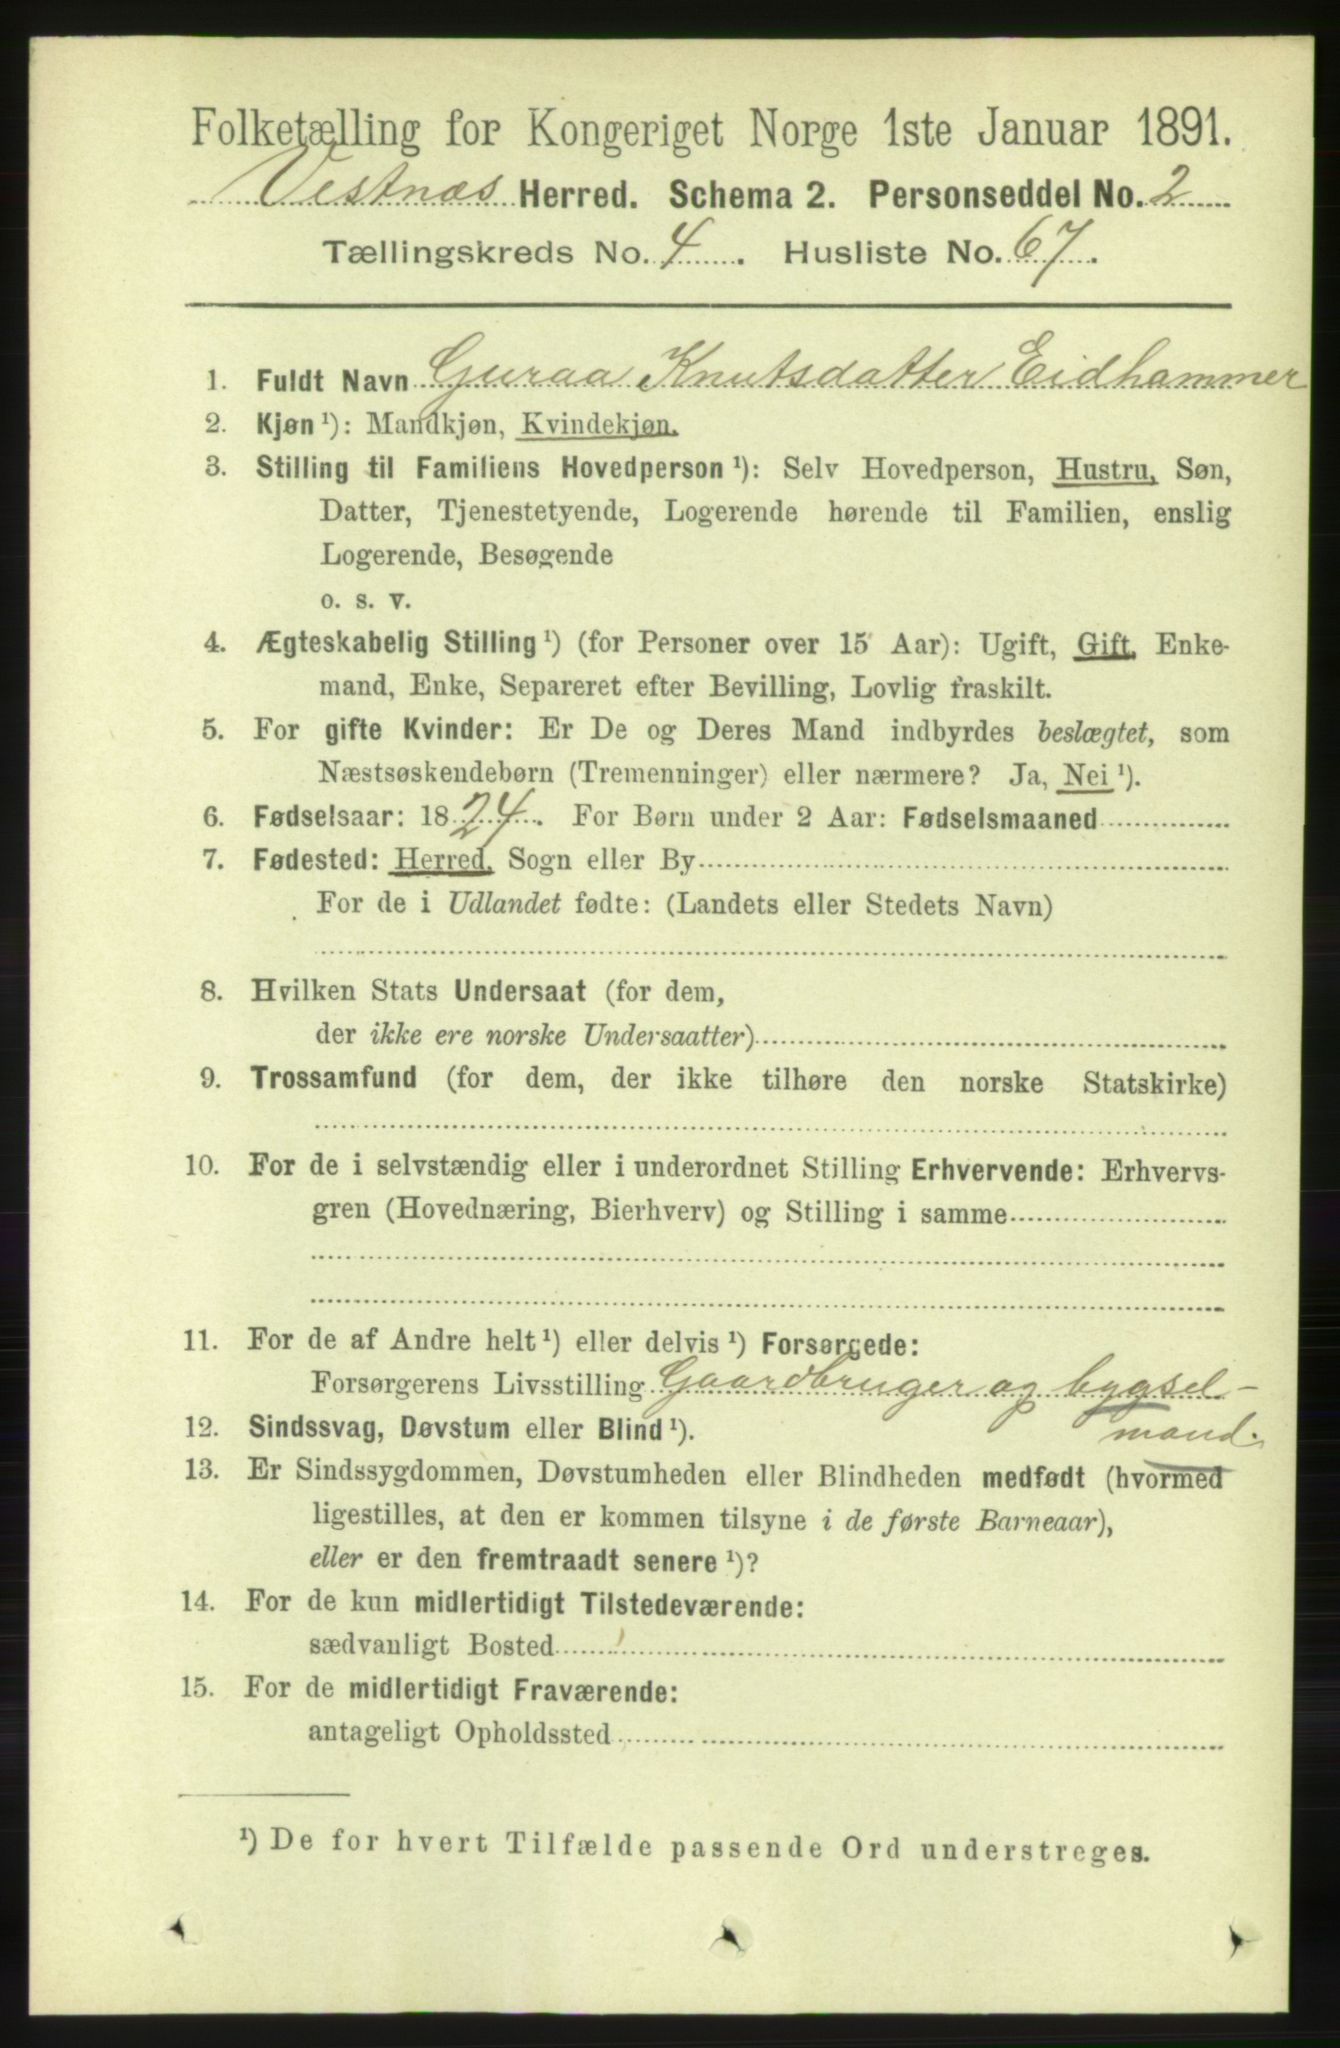 Folketælling for Kongeriget Norge 1ste Januar 1891.
Vestnæs Herred. Schema 2. Personseddel No. 2
Tællingskreds No. 4. Husliste No. 67.
1. Fuldt Navn Guraa Knutsdatter Eidhammer
2. Kjøn ¹): Mandkjøn, Kvindekjøn.
3. Stilling til Familiens Hovedperson ¹): Selv Hovedperson, Hustru, Søn,
Datter, Tjenestetyende, Logerende hørende til Familien, enslig
Logerende, Besøgende
o. s. v.
4. Ægteskabelig Stilling ¹) (for Personer over 15 Aar): Ugift, Gift, Enke-
mand, Enke, Separeret efter Bevilling, Lovlig fraskilt.
5. For gifte Kvinder: Er De og Deres Mand indbyrdes beslægtet, som
Næstsøskendebørn (Tremenninger) eller nærmere? Ja, Nei ¹).
6. Fødselsaar: 1824. For Børn under 2 Aar: Fødselsmaaned
7. Fødested: Herred, Sogn eller By
For de i Udlandet fødte: (Landets eller Stedets Navn)
8. Hvilken Stats Undersaat (for dem,
der ikke ere norske Undersaatter)
9. Trossamfund (for dem, der ikke tilhøre den norske Statskirke)
10. For de i selvstændig eller i underordnet Stilling Erhvervende: Erhvervs-
gren (Hovednæring, Bierhverv) og Stilling i samme
11. For de af Andre helt ¹) eller delvis ¹) Forsørgede:
Forsørgerens Livsstilling Gaardbruger og bygsel-
mand.
12. Sindssvag, Døvstum eller Blind ¹).
13. Er Sindssygdommen, Døvstumheden eller Blindheden medfødt (hvormed
ligestilles, at den er kommen tilsyne i de første Barneaar),
eller er den fremtraadt senere ¹)?
14. For de kun midlertidigt Tilstedeværende:
sædvanligt Bosted
15. For de midlertidigt Fraværende:
antageligt Opholdssted
¹) De for hvert Tilfælde passende Ord understreges.